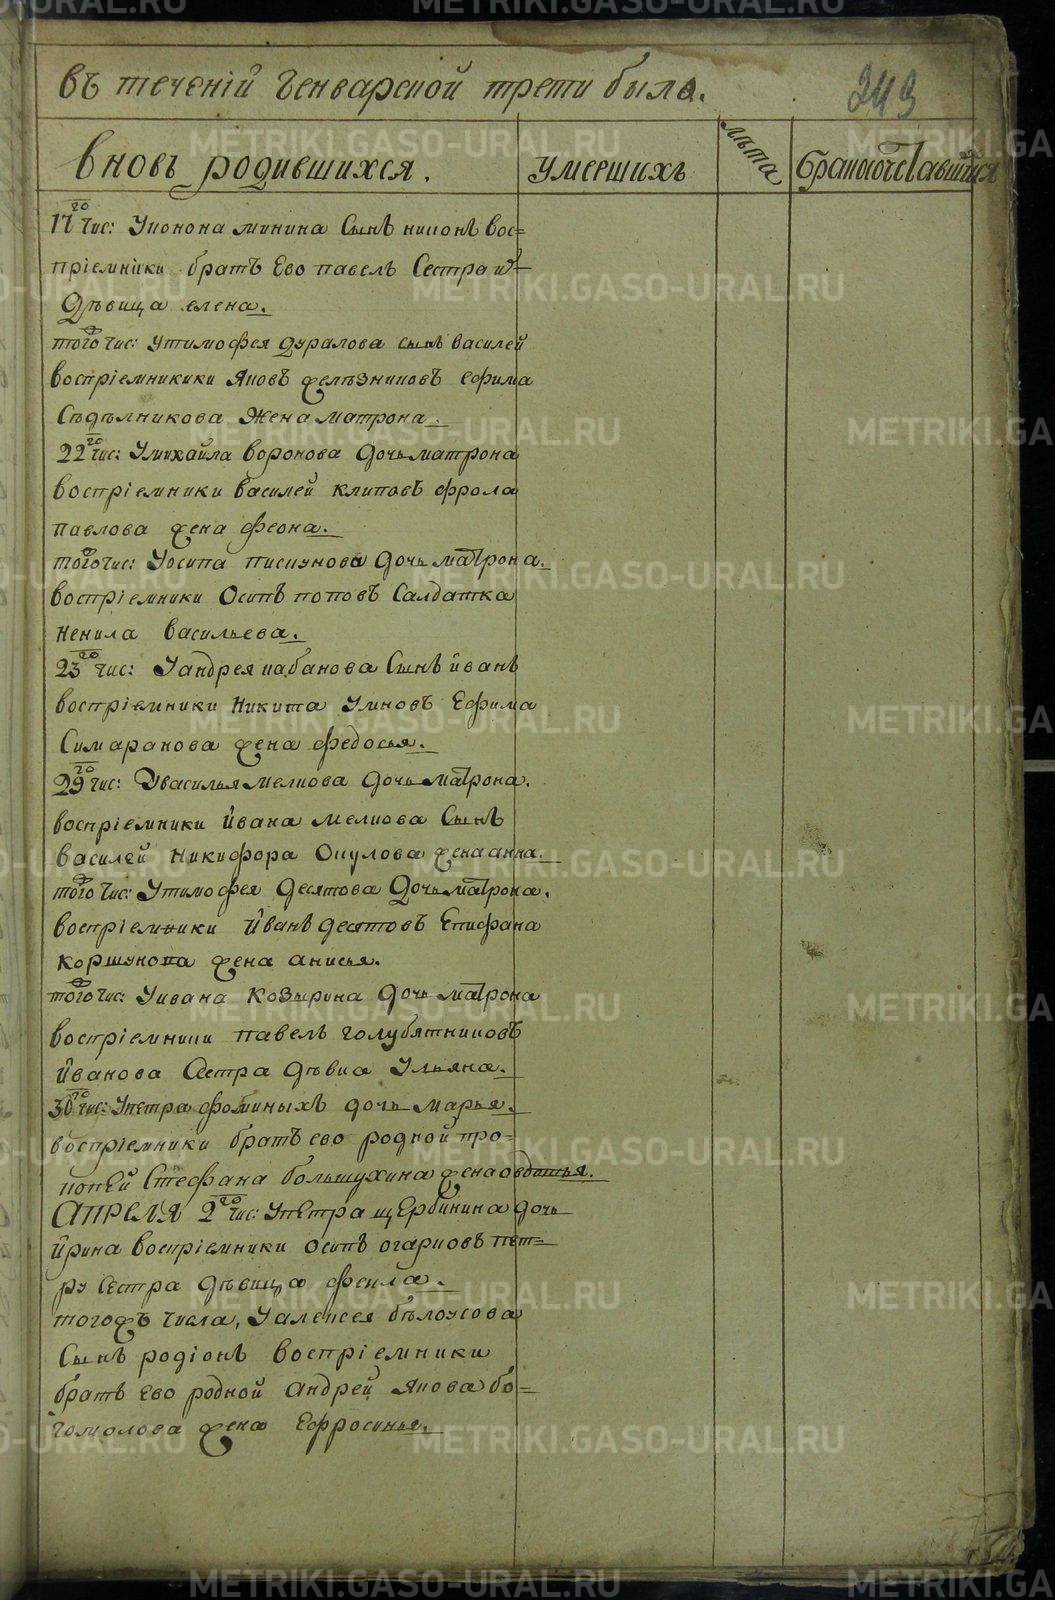 въ теченiй Генварской трети было.
243
вновь родившихся.
умершихъ
лѣта
бракосочетавшихся
17го чис: Уконона минина Сынъ никонъ вос=
прiемники братъ Ево павелъ Сестра
Дѣвица елена.
того чис: утимофея дуралова сынъ василей
воспрiемникики яковъ желѣзниковъ ефима
Сѣдѣлникова Жена матрона.
22го чис: Умихайла воронова дочь матрона
воспрiемники василей клиповъ фрола
павлова жена феона.
того чис: Уосипа пискунова дочь матрона.
воспрiемники Осипъ поповъ Салдатка
Ненила васильева.
23го чис: Уандрея кабанова Сынъ иванъ
воспрiемники Никита Умновъ Ефима
Симаранова жена федосья.
29го чис: Увасилья мелкова дочь матрона.
воспрiемники ивана мелкова Сынъ
василей Никифора Окулова жена анна.
того чис: Утимофея десятова дочь матрона.
воспрiемники Иванъ десятовъ Епифана
коршунова жена анисья.
того чис: Уивана Козырина дочь матрона
воспрiемники павелъ голубятниковъ
иванова Сестра дѣвка Ульяна.
30го чис: Упетра фоминыхъ дочь марья.
воспрiемники братъ ево родной про=
копей Стефана большухина жена овдотья.
АПРЕЛЯ 2го чис: Упетра щербинина дочь
ирина воспрiемники осипъ огарковъ пет=
ру Сестра дѣвица фекла.
тогожъ числа, Уалексея бѣлоусова
Сынъ родiонъ воспрiемники
братъ ево родной андрей якова бо=
гомолова жена Ефросинья.
METRIKI.GASO-URAL.RU